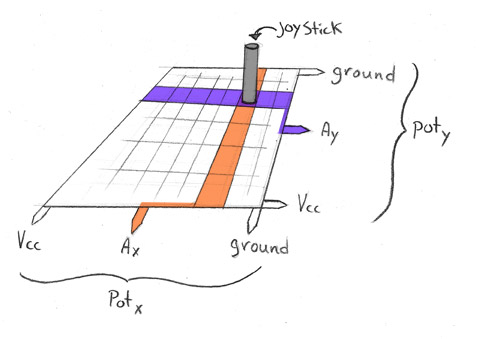 joystick
ground
Ay
Poty
Vcc
Vcc
Ax
ground
Potx